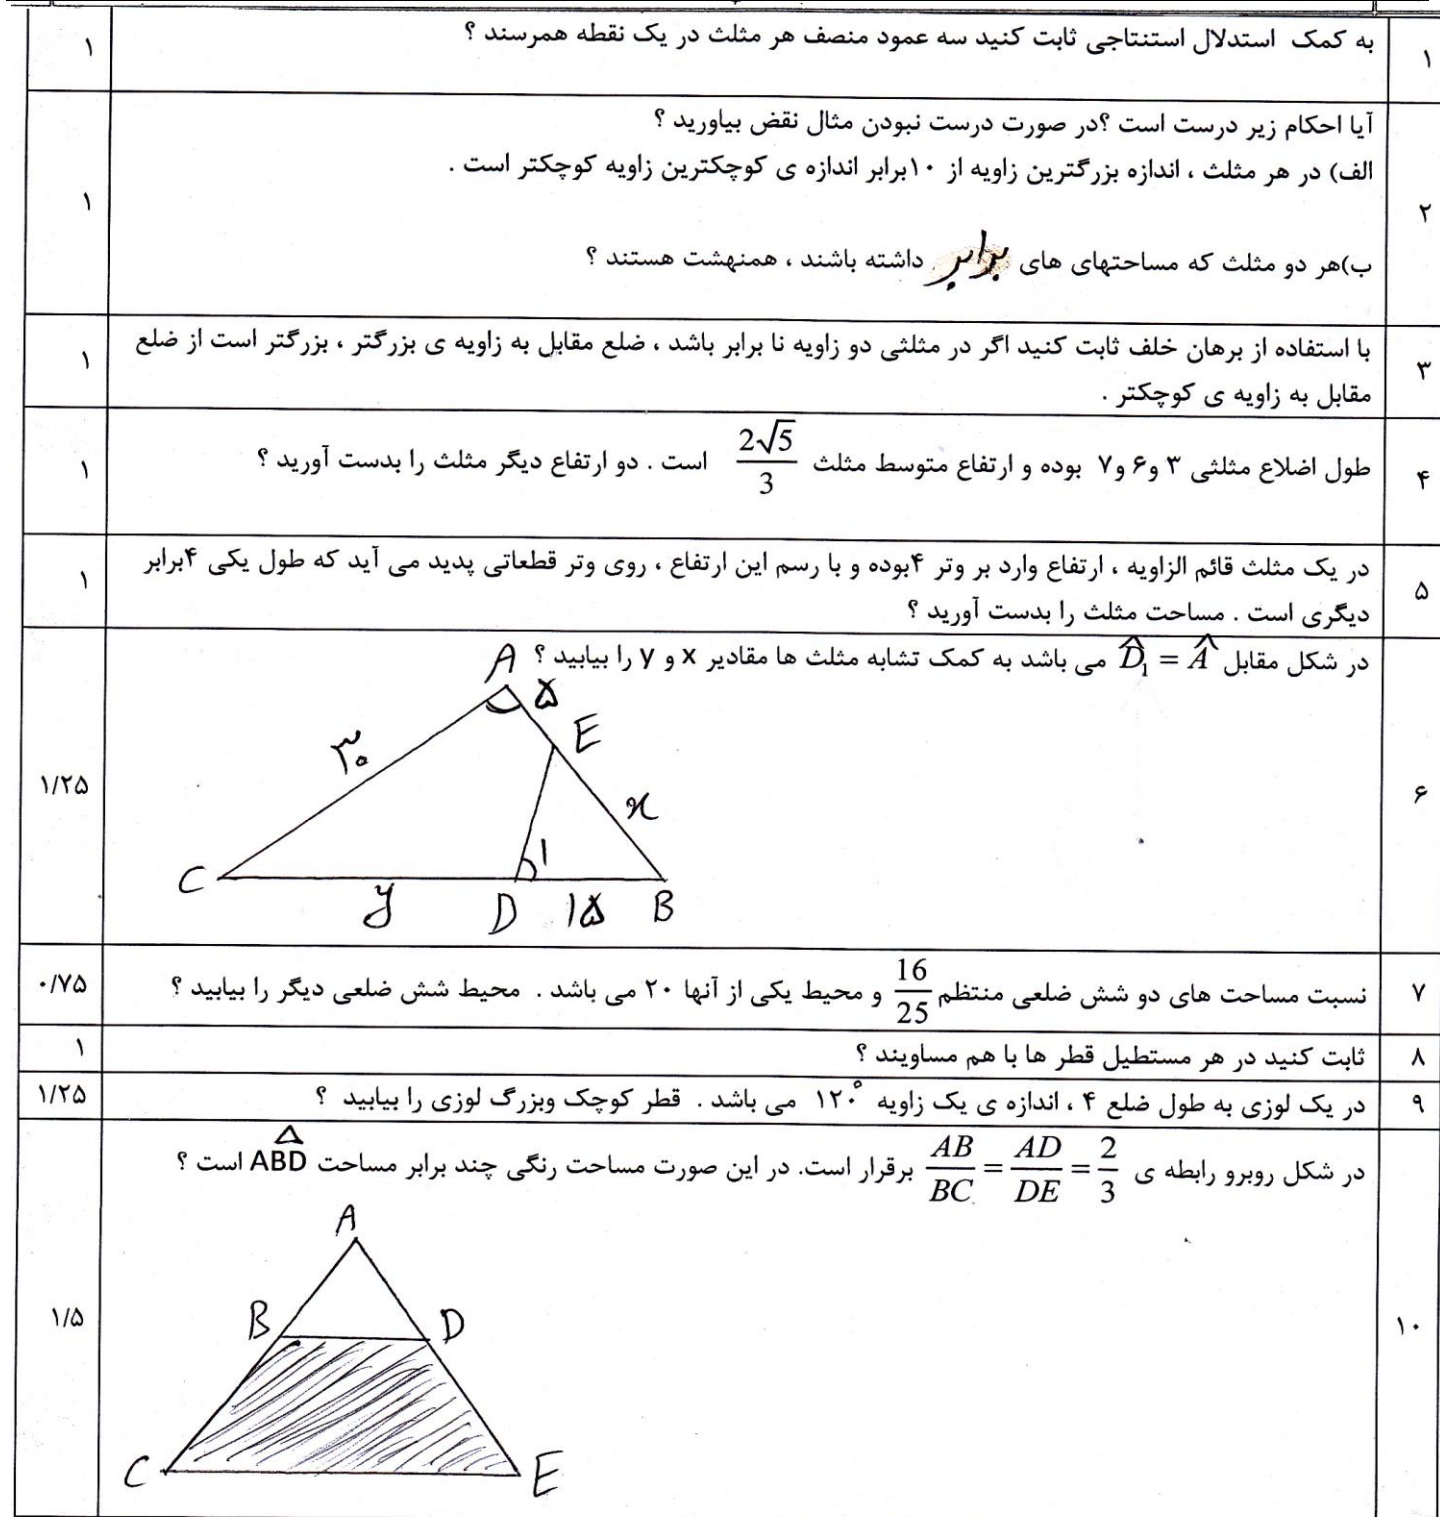 ۱ به کمک استدلال استنتاجی ثابت کنید سه عمود منصف هر مثلث در یک نقطه همرسند ؟ ۱
آیا احکام زیر درست است ؟در صورت درست نبودن مثال نقض بیاورید ؟
الف) در هر مثلث ، اندازه بزرگترین زاویه از ۱۰برابر اندازه ی کوچکترین زاویه کوچکتر است .
۲ ۱
ب)هر دو مثلث که مساحتهای های برابر داشته باشند ، همنهشت هستند ؟
با استفاده از برهان خلف ثابت کنید اگر در مثلثی دو زاویه نا برابر باشد ، ضلع مقابل به زاویه ی بزرگتر ، بزرگتر است از ضلع
۳ ۱
مقابل به زاویه ی کوچکتر .
۴ طول اضلاع مثلثی ۳ و۶ و۷ بوده و ارتفاع متوسط مثلث 2√5/3 است . دو ارتفاع دیگر مثلث را بدست آورید ؟ ۱
در یک مثلث قائم الزاویه ، ارتفاع وارد بر وتر ۴بوده و با رسم این ارتفاع ، روی وتر قطعاتی پدید می آید که طول یکی ۴برابر
۵ ۱
دیگری است . مساحت مثلث را بدست آورید ؟
در شکل مقابل D̂₁ = Â می باشد به کمک تشابه مثلث ها مقادیر x و y را بیابید ؟
A ۵
E
۳۰
x
۶ ۱/۲۵
۱
C y D ۱۵ B
۷ نسبت مساحت های دو شش ضلعی منتظم 16/25 و محیط یکی از آنها ۲۰ می باشد . محیط شش ضلعی دیگر را بیابید ؟ ۰/۷۵
۸ ثابت کنید در هر مستطیل قطر ها با هم مساویند ؟ ۱
۹ در یک لوزی به طول ضلع ۴ ، اندازه ی یک زاویه ۱۲۰° می باشد . قطر کوچک وبزرگ لوزی را بیابید ؟ ۱/۲۵
در شکل روبرو رابطه ی AB/BC = AD/DE = 2/3 برقرار است. در این صورت مساحت رنگی چند برابر مساحت ABD است ؟
A
B D
۱۰ ۱/۵
C E